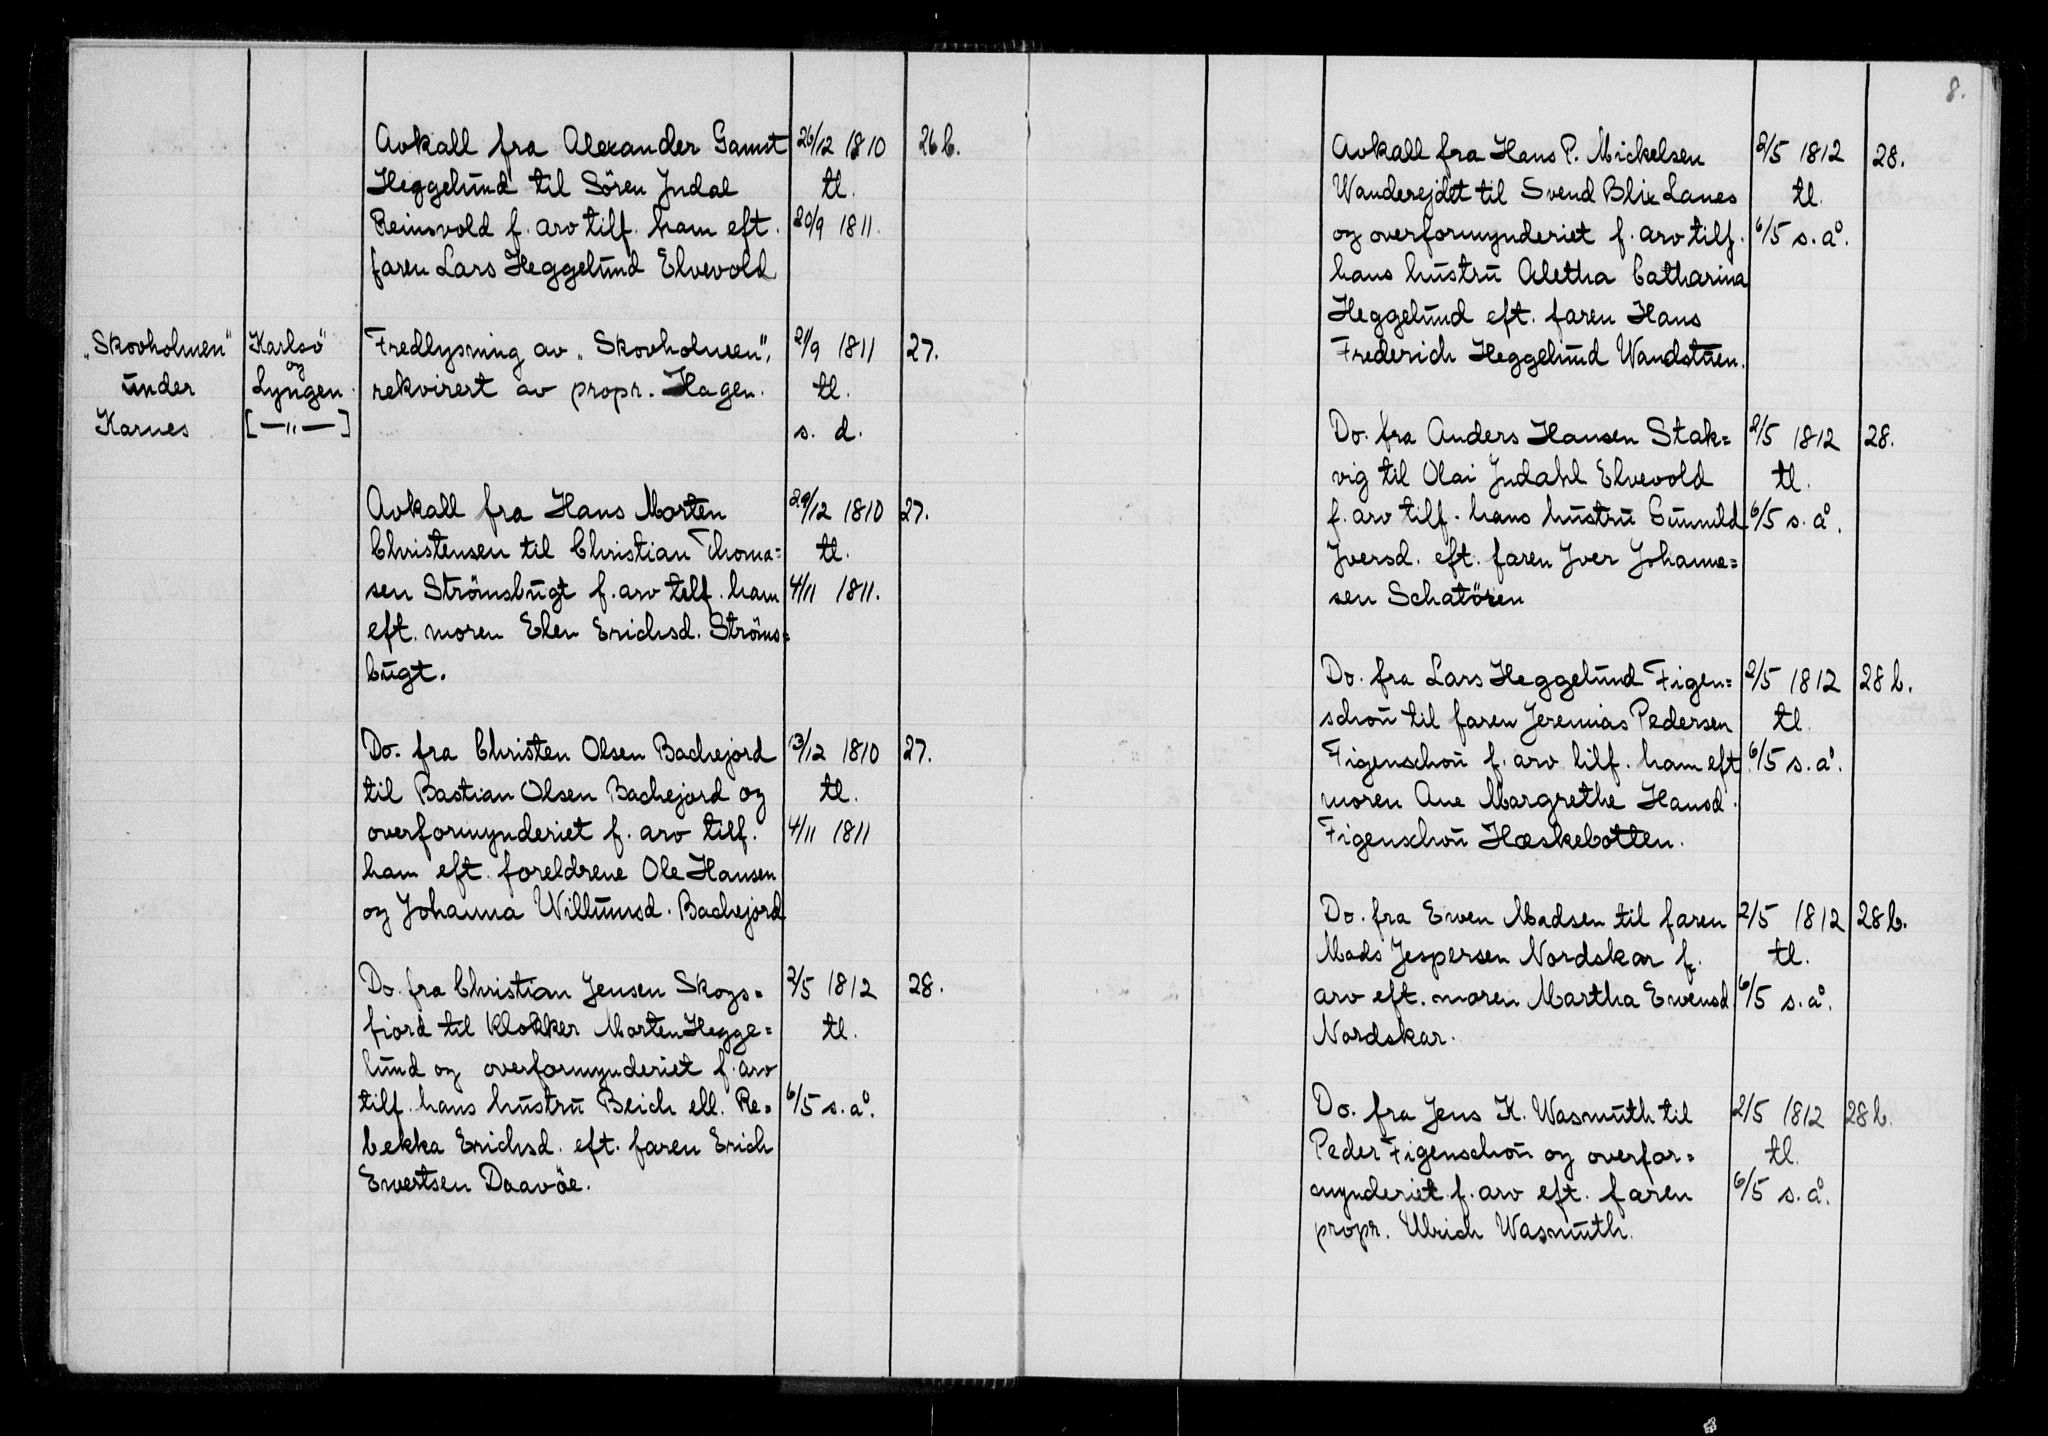 Avkall fra Alexander Gamst 26/12 1810 26b.
Heggelund til Sören Jndal tl.
Reinsvold f. arv tilf. ham eft. 20/9 1811.
faren Lars Heggelund Elvevold
„Skovholmen" Karlsö Fredlysning av „Skovholmen", 21/9 1811 27.
og
under Lyngen. rekvirert av propr. Hagen. tl.
Karnes [—"—] s. d.
Avkall fra Hans Morten 29/12 1810 27.
Christensen til Christian Thoma= tl.
sen Strömsbugt f. arv telf. ham 4/11 1811.
eft. moren Elen Erichsd. Ströms=
bugt.
Do. fra Christen Olsen Bachejord 13/12 1810 27.
til Bastian Olsen Bachejord og tl.
overformynderiet f. arv tilf. 4/11 1811
ham eft. foreldrene Ole Hansen
og Johanna Willumsd. Bachejord
Do. fra Christian Jensen Skogs= 2/5 1812 28.
fjord til klokker Morten Hegge= tl.
lund og overformynderiet f. arv
tilf. hans hustru Beich ell. Re= 6/5 s. aº.
bekka Erichsd. eft. faren Erich
Evertsen Daavöe.
8.
Avkall fra Hans P. Mickelsen 2/5 1812 28.
Wanderejdet til Svend Blix Lanes tl.
og overformynderiet f. arv tilf. 6/5 s. aº.
hans hustru Aletha Catharina
Heggelund eft. faren Hans
Frederich Heggelund Wandstuen.
Do. fra Anders Hansen Stak= 2/5 1812 28.
vig til Olai Jndahl Elvevold tl.
f. arv tilf. hans hustru Gunnild 6/5 s. aº.
Jversd. eft. faren Jver Johanne=
sen Schatören
Do. fra Lars Heggelund Figen= 2/5 1812 28b.
schou til faren Jeremias Pedersen tl.
Figenschou f. arv tilf. ham eft. 6/5 s. aº.
moren Ane Margrethe Hansd.
Figenschou Hæskebotten.
Do. fra Ewen Madsen til faren 2/5 1812 28b.
Mads Jespersen Nordskar f. tl.
arv eft. moren Martha Ewensd 6/5 s. aº.
Nordskar.
Do. fra Jens K. Wasmuth til 2/5 1812 28b.
Peder Figenschou og overfor= tl.
mynderiet f. arv eft. faren 6/5 s. aº.
propr. Ulrich Wasmuth.